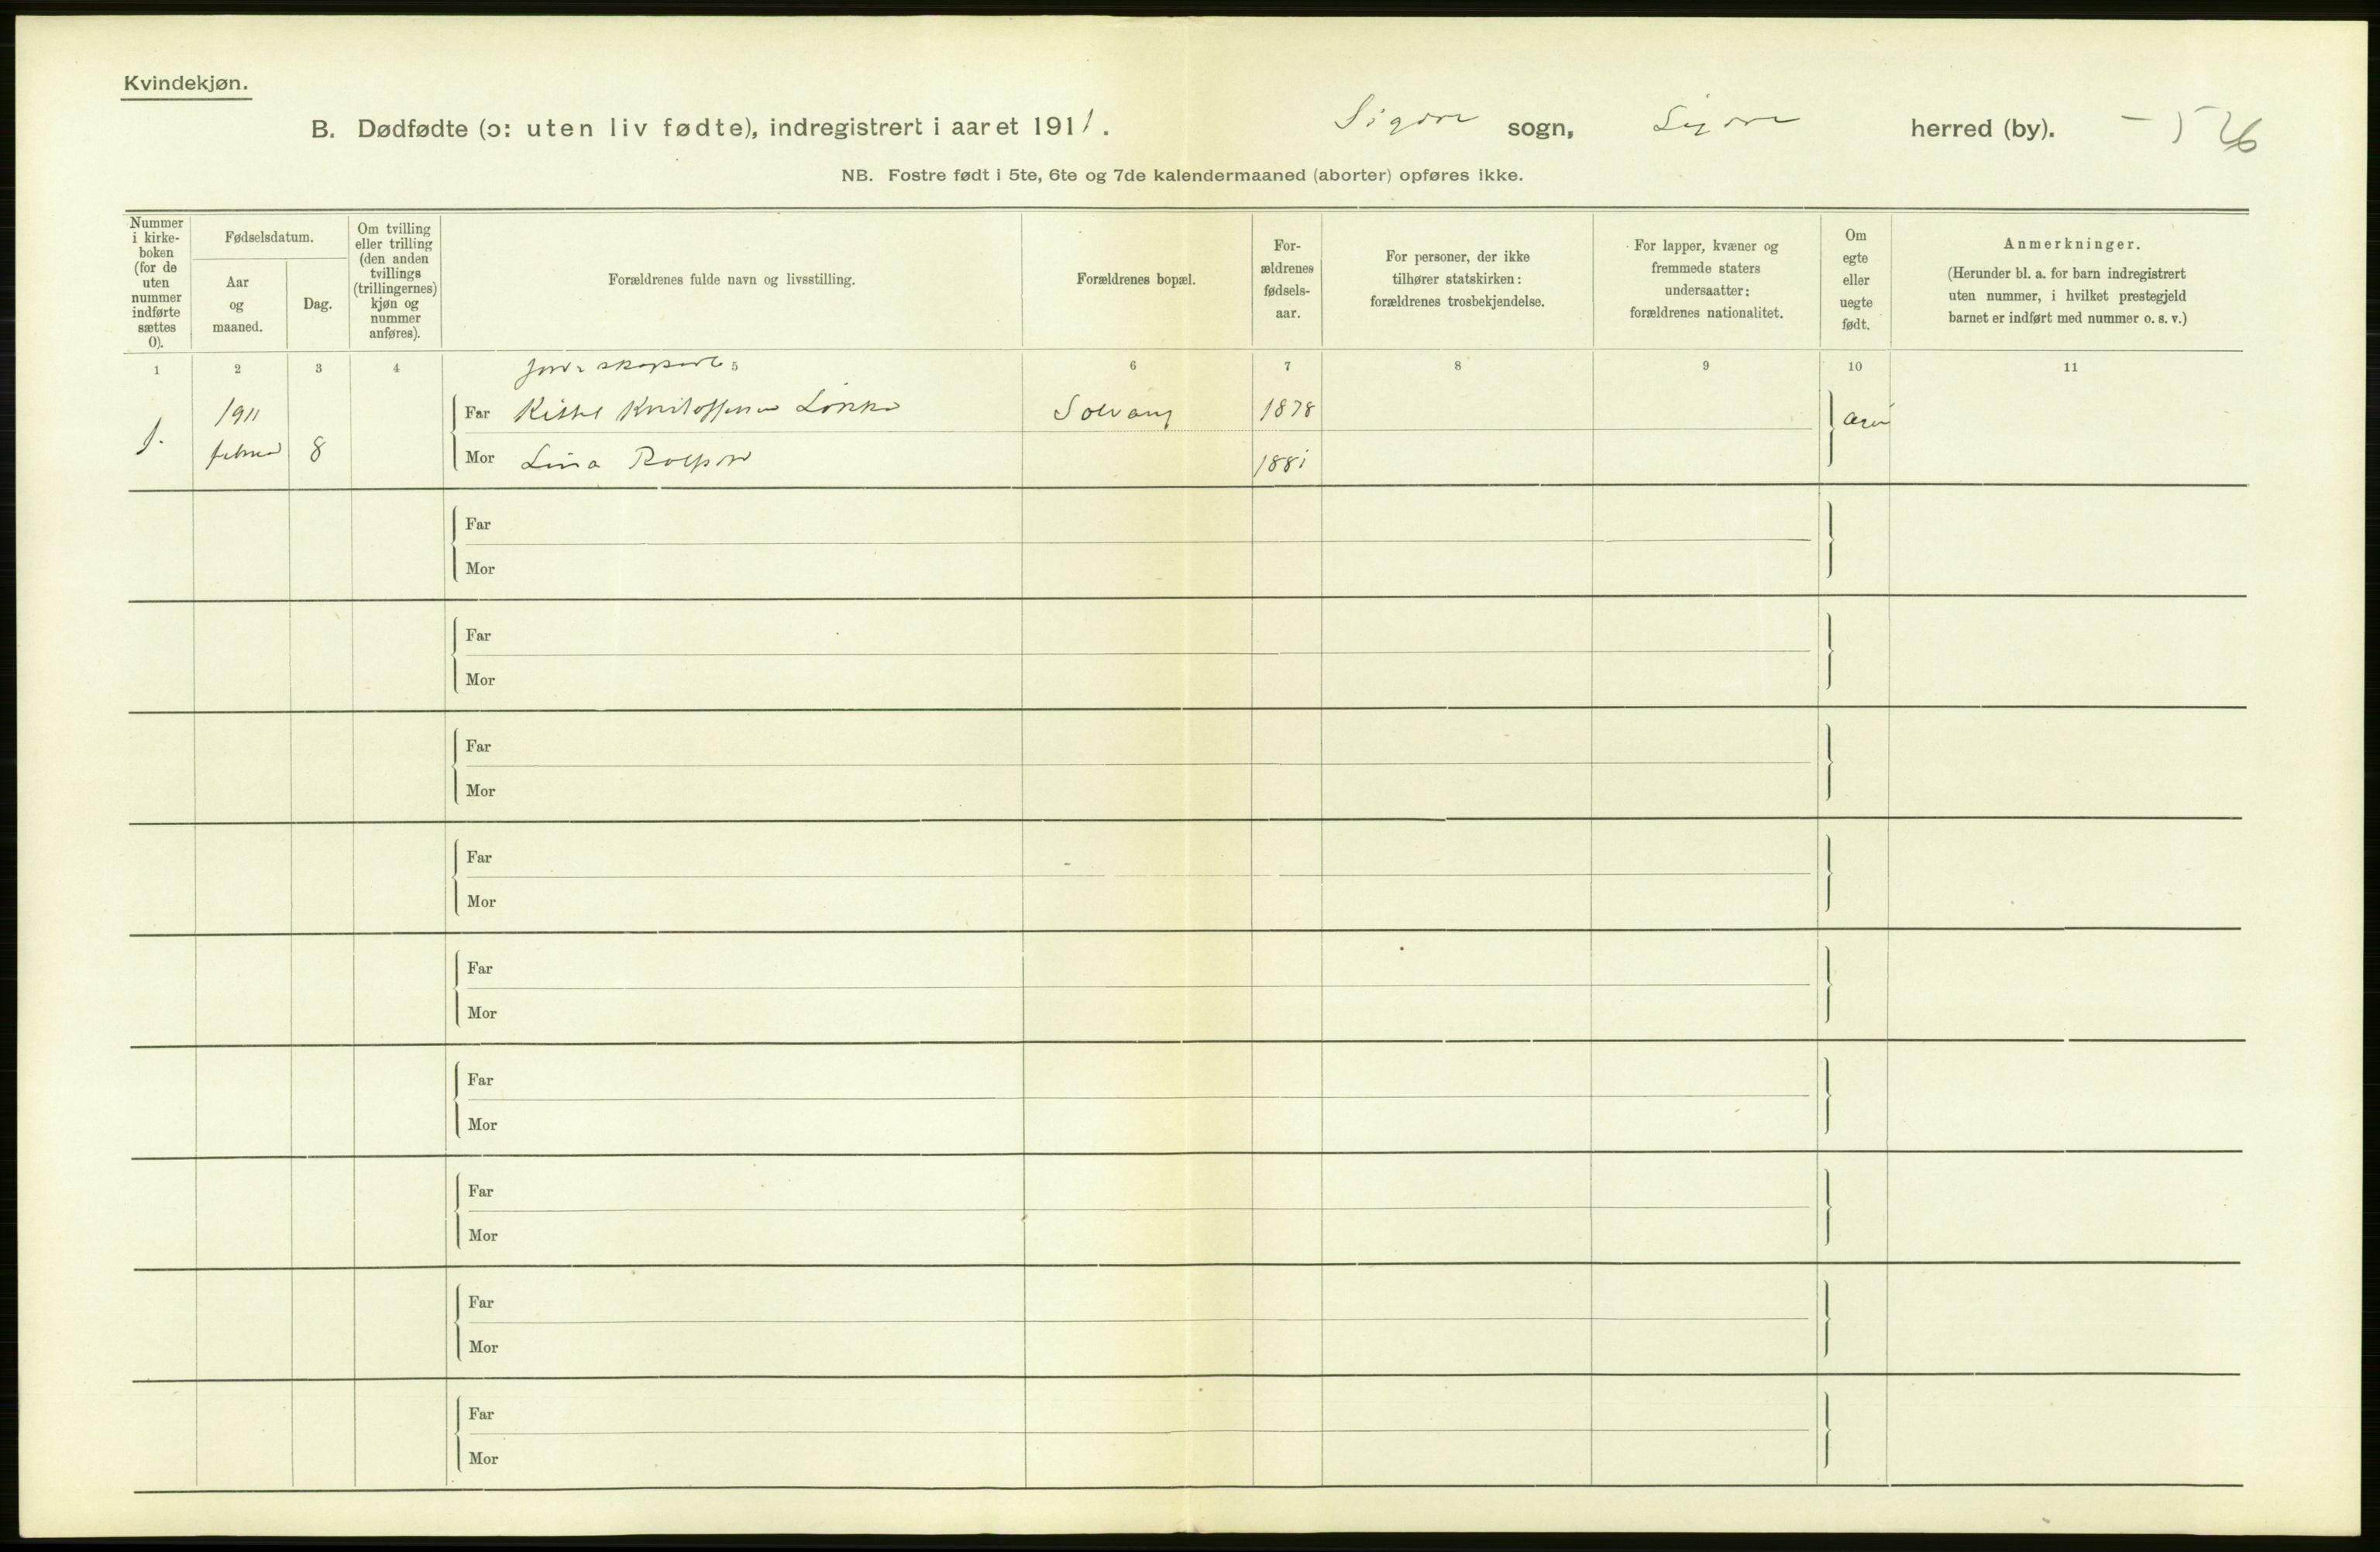 Kvindekjøn.
B. Dødfødte (ɔ: uten liv fødte), indregistrert i aaret 1911. Sigdre sogn, Sigdre herred (by).
NB. Fostre født i 5te, 6te og 7de kalendermaaned (aborter) opføres ikke.
Nummer
i kirke-
boken
(for de
uten
nummer
indførte
sættes
0).
Fødselsdatum.
Aar
og
maaned.
Dag.
Om tvilling
eller trilling
(den anden
tvillings
(trillingernes)
kjøn og
nummer
anføres).
Forældrenes fulde navn og livsstilling.
Forældrenes bopæl.
For-
ældrenes
fødsels-
aar.
For personer, der ikke
tilhører statskirken:
forældrenes trosbekjendelse.
For lapper, kvæner og
fremmede staters
undersaatter:
forældrenes nationalitet.
Om
egte
eller
uegte
født.
Anmerkninger.
(Herunder bl. a. for barn indregistrert
uten nummer, i hvilket prestegjeld
barnet er indført med nummer o. s. v.)
1 2 3 4 5 6 7 8 9 10 11
1. 1911 Far Kittel Kristoffersen Solvang 1878
8 Mor Lina 1881
Far
Mor
Far
Mor
Far
Mor
Far
Mor
Far
Mor
Far
Mor
Far
Mor
Far
Mor
Far
Mor